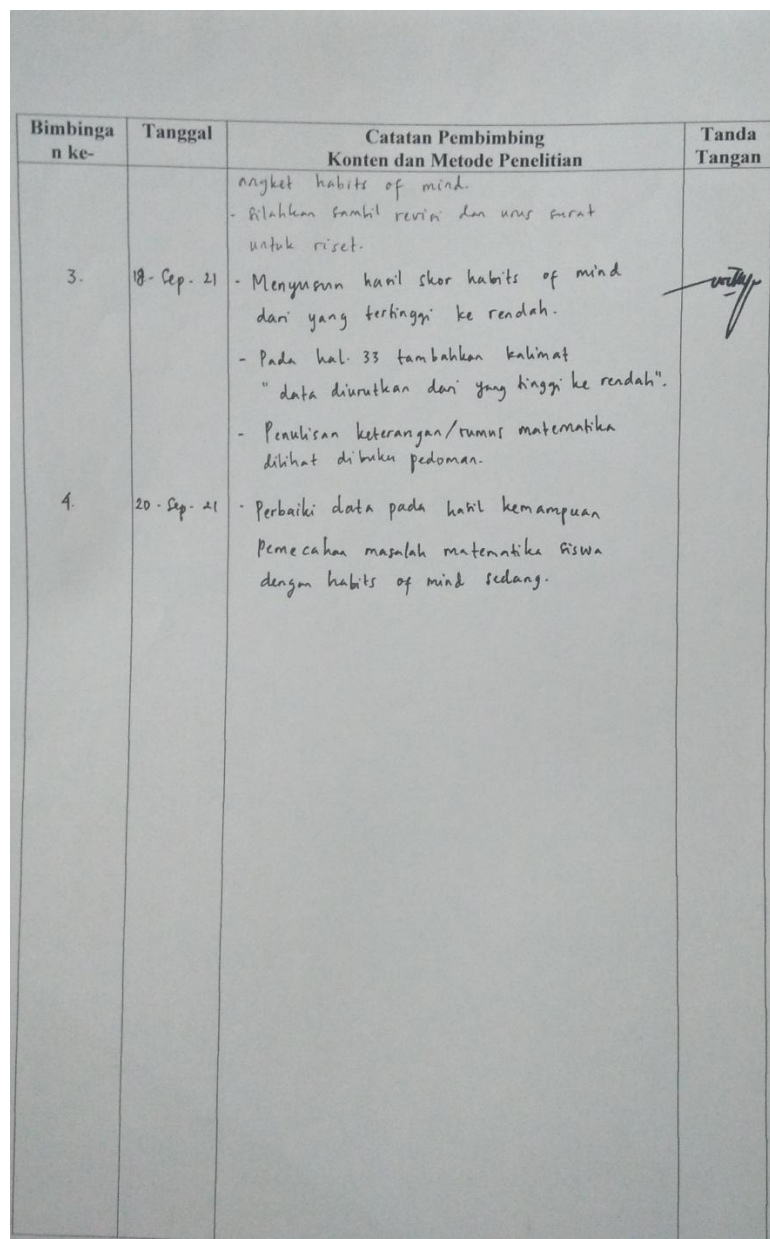 Bimbinga
n ke-
Tanggal
Catatan Pembimbing
Konten dan Metode Penelitian
Tanda
Tangan
angket habits of mind.
- Silahkan sambil revisi dan urus surat
untuk riset.
3. 18-Sep-21 - Menyusun hasil skor habits of mind
dari yang tertinggi ke rendah.
- Pada hal. 33 tambahkan kalimat
"data diurutkan dari yang tinggi ke rendah".
- Penulisan keterangan/rumus matematika
dilihat dibuku pedoman.
4. 20-Sep-21 - Perbaiki data pada hasil kemampuan
Pemecahan masalah matematika siswa
dengan habits of mind sedang.